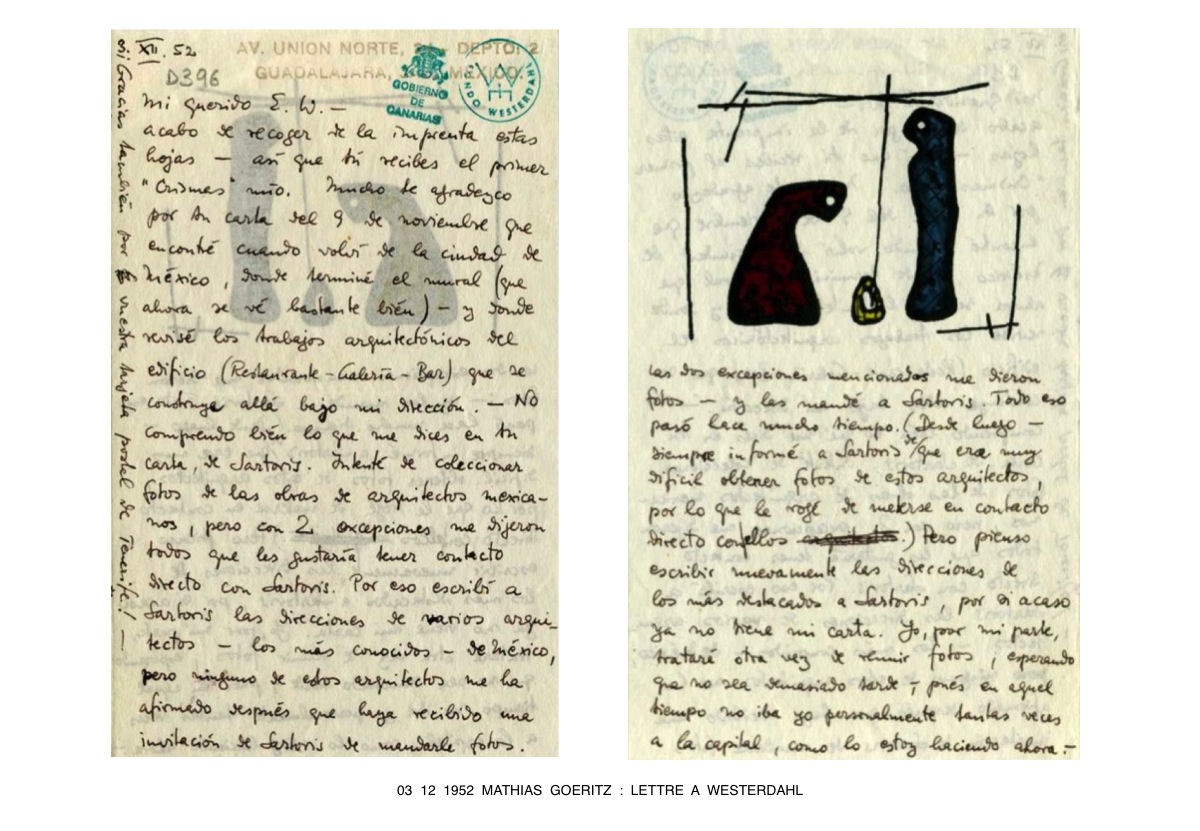 3 XII. 52
AV. UNION NORTE, DEPTO: 2
GUADALAJARA, MEXICO.
D396
GOBIERNO
DE
CANARIAS
FONDO WESTERDAHL
Mi querido E. W. —
acabo de recoger de la imprenta estas
hojas — así que tú recibes el primer
"Crismas" mío. Mucho te agradezco
por tu carta del 9 de noviembre que
encontré cuando volví de la ciudad de
México, donde terminé el mural (que
ahora se vé bastante bién) — y donde
revisé los trabajos arquitectónicos del
edificio (Restaurante - Galería - Bar) que se
construye allá bajo mi dirección. — No
comprendo bién lo que me dices en tu
carta, de Sartoris. Intenté de coleccionar
fotos de las obras de arquitectos mexica-
nos, pero con 2 excepciones me dijeron
todos que les gustaría tener contacto
directo con Sartoris. Por eso escribí a
Sartoris las direcciones de varios arqui-
tectos — los más conocidos — de México,
pero ninguno de estos arquitectos me ha
afirmado después que haya recibido una
invitación de Sartoris de mandarle fotos.
¡¡Gracias también por vuestra tarjeta postal de Tenerife! —
Las dos excepciones mencionadas me dieron
fotos — y las mandé a Sartoris. Todo eso
pasó hace mucho tiempo. (Desde luego —
siempre informé a Sartoris de que era muy
difícil obtener fotos de estos arquitectos,
por lo que le rogé de meterse en contacto
directo con ellos .) Pero pienso
escribir nuevamente las direcciones de
los más destacados a Sartoris, por si acaso
ya no tiene mi carta. Yo, por mi parte,
trataré otra vez de reunir fotos, esperando
que no sea demasiado tarde; pués en aquel
tiempo no iba yo personalmente tantas veces
a la capital, como lo estoy haciendo ahora. —
03 12 1952 MATHIAS GOERITZ : LETTRE A WESTERDAHL